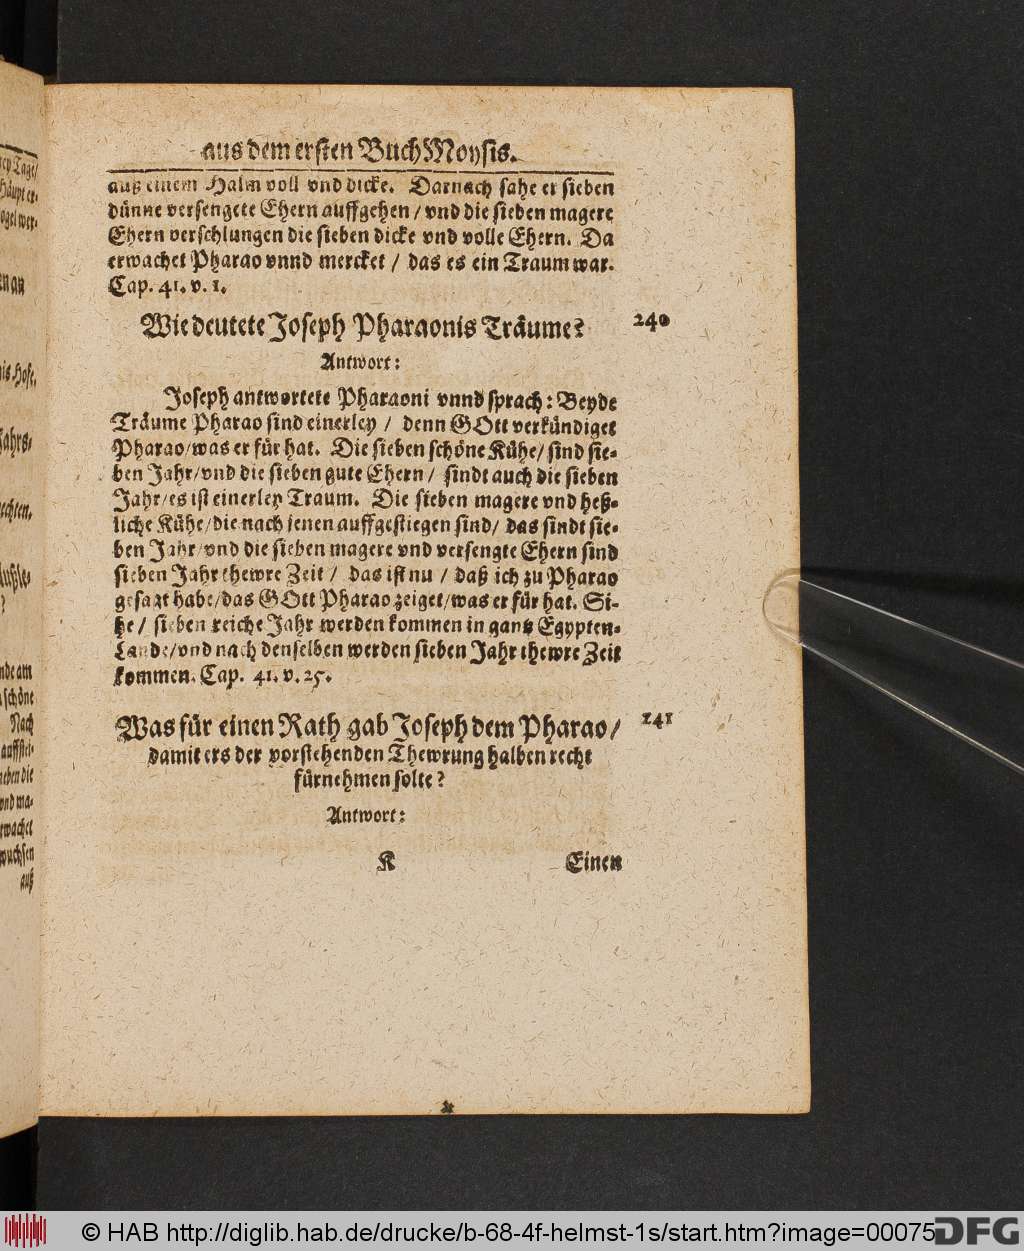 rey Tage/
Häupt er-
ogel wer-
en an
is Hofe.
Jahrs-
echten.
?
nde am
schöne
Nach
auffstei-
neben die
vnd ma-
rwachet
wuchsen
auß
aus dem ersten Buch Moysis.
auß einem Halm voll vnd dicke. Darnach sahe er sieben
dünne versengete Ehern auffgehen / vnd die sieben magere
Ehern verschlungen die sieben dicke vnd volle Ehern. Da
erwachet Pharao vnnd mercket / das es ein Traum war.
Cap. 41. v. 1.
Wie deutete Joseph Pharaonis Träume? 240
Antwort:
Joseph antwortete Pharaoni vnnd sprach: Beyde
Träume Pharao sind einerley / denn GOtt verkündiget
Pharao/was er für hat. Die sieben schöne Kühe/ sind sie-
ben Jahr/vnd die sieben gute Ehern / sindt auch die sieben
Jahr/es ist einerley Traum. Die sieben magere vnd heß-
liche Kühe/die nach jenen auffgestiegen sind/ das sindt sie-
ben Jahr/vnd die sieben magere vnd versengte Ehern sind
sieben Jahr thewre Zeit / das ist nu / daß ich zu Pharao
gesagt habe/das GOtt Pharao zeiget/was er für hat. Si-
he / sieben reiche Jahr werden kommen in gantz Egypten-
Lande/vnd nach denselben werden sieben Jahr thewre Zeit
kommen. Cap. 41. v. 25.
Was für einen Rath gab Joseph dem Pharao/ 241
damit ers der vorstehenden Thewrung halben recht
fürnehmen solte?
Antwort:
K Einen
© HAB http://diglib.hab.de/drucke/b-68-4f-helmst-1s/start.htm?image=00075 DFG